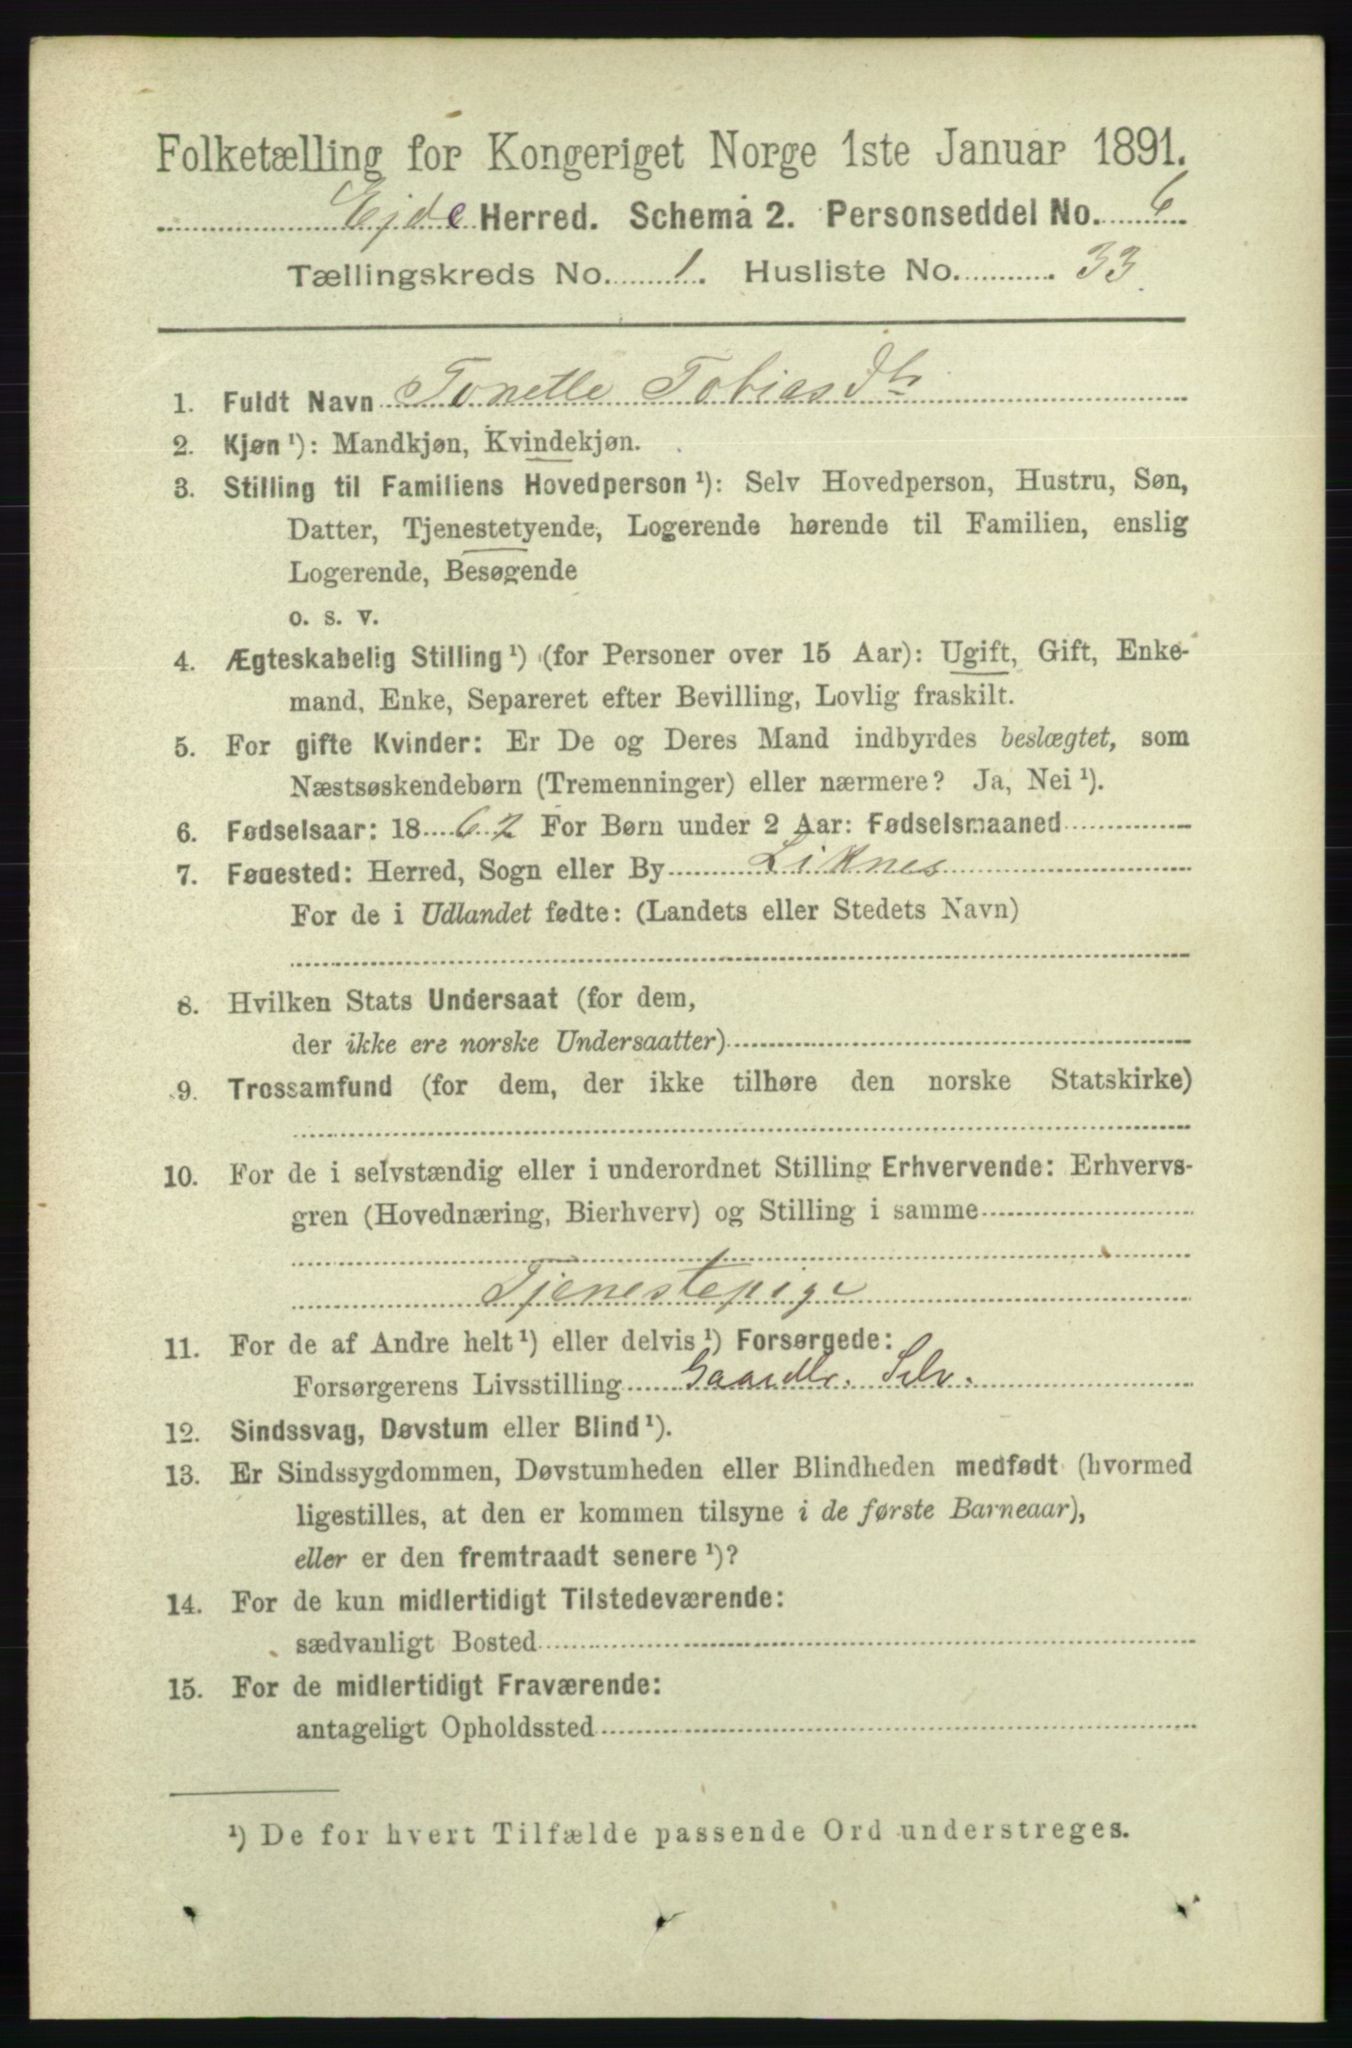 Folketælling for Kongeriget Norge 1ste Januar 1891.
Ejde Herred. Schema 2. Personseddel No. 6
Tællingskreds No. 1. Husliste No. 33
1. Fuldt Navn Tonette Tobiasdtr
2. Kjøn ¹): Mandkjøn, Kvindekjøn.
3. Stilling til Familiens Hovedperson ¹): Selv Hovedperson, Hustru, Søn,
Datter, Tjenestetyende, Logerende hørende til Familien, enslig
Logerende, Besøgende
o. s. v.
4. Ægteskabelig Stilling ¹) (for Personer over 15 Aar): Ugift, Gift, Enke-
mand, Enke, Separeret efter Bevilling, Lovlig fraskilt.
5. For gifte Kvinder: Er De og Deres Mand indbyrdes beslægtet, som
Næstsøskendebørn (Tremenninger) eller nærmere? Ja, Nei ¹).
6. Fødselsaar: 1862 For Børn under 2 Aar: Fødselsmaaned
7. Føuested: Herred, Sogn eller By Liknes
For de i Udlandet fødte: (Landets eller Stedets Navn)
8. Hvilken Stats Undersaat (for dem,
der ikke ere norske Undersaatter)
9. Trossamfund (for dem, der ikke tilhøre den norske Statskirke)
10. For de i selvstændig eller i underordnet Stilling Erhvervende: Erhvervs-
gren (Hovednæring, Bierhverv) og Stilling i samme
Tjenestepige
11. For de af Andre helt ¹) eller delvis ¹) Forsørgede:
Forsørgerens Livsstilling Gaardbr. Selv.
12. Sindssvag, Døvstum eller Blind ¹).
13. Er Sindssygdommen, Døvstumheden eller Blindheden medfødt (hvormed
ligestilles, at den er kommen tilsyne i de første Barneaar),
eller er den fremtraadt senere ¹)?
14. For de kun midlertidigt Tilstedeværende:
sædvanligt Bosted
15. For de midlertidigt Fraværende:
antageligt Opholdssted
¹) De for hvert Tilfælde passende Ord understreges.